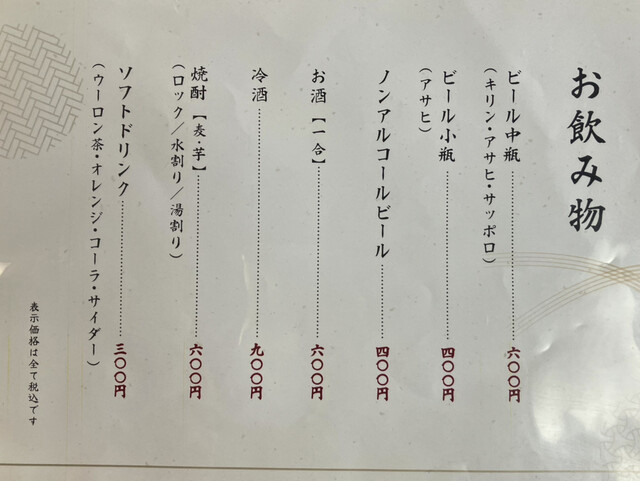 お飲み物
ビール中瓶……………六〇〇円
（キリン・アサヒ・サッポロ）
ビール小瓶……………四〇〇円
（アサヒ）
ノンアルコールビール……………四〇〇円
お酒【一合】……………六〇〇円
冷酒……………九〇〇円
焼酎【麦・芋】……………六〇〇円
（ロック／水割り／湯割り）
ソフトドリンク……………三〇〇円
（ウーロン茶・オレンジ・コーラ・サイダー）
表示価格は全て税込です